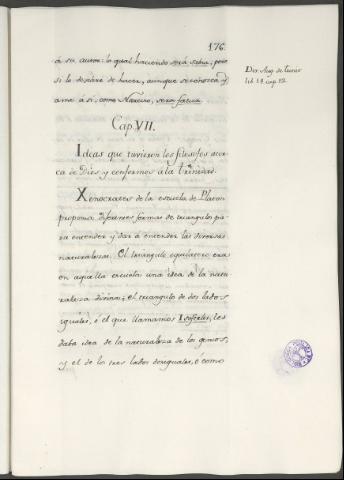 176.
á su autor: lo qual haciendo será sabia; pero
si lo dexáre de hacer, aunque se conozca y
ame á sí, como Narciso, será fatua.
Div. Aug. de Trinit.
lib. 14. cap. 12.
Cap. VII.
Ideas que tuvieron los filosofos acer-
ca de Dios y conformes á la trinidad.
Xenocrates de la escuela de Platon
proponia diferentes formas de triangulos pa-
ra entender y dar á entender las diversas
naturalezas. El triangulo equilatero era
en aquella escuela una idea de la natu-
raleza divina; el triangulo de dos lados
iguales, ó el que llamamos Isósceles, les
daba idea de la naturaleza de los genios;
y el de los tres lados desiguales, ó como